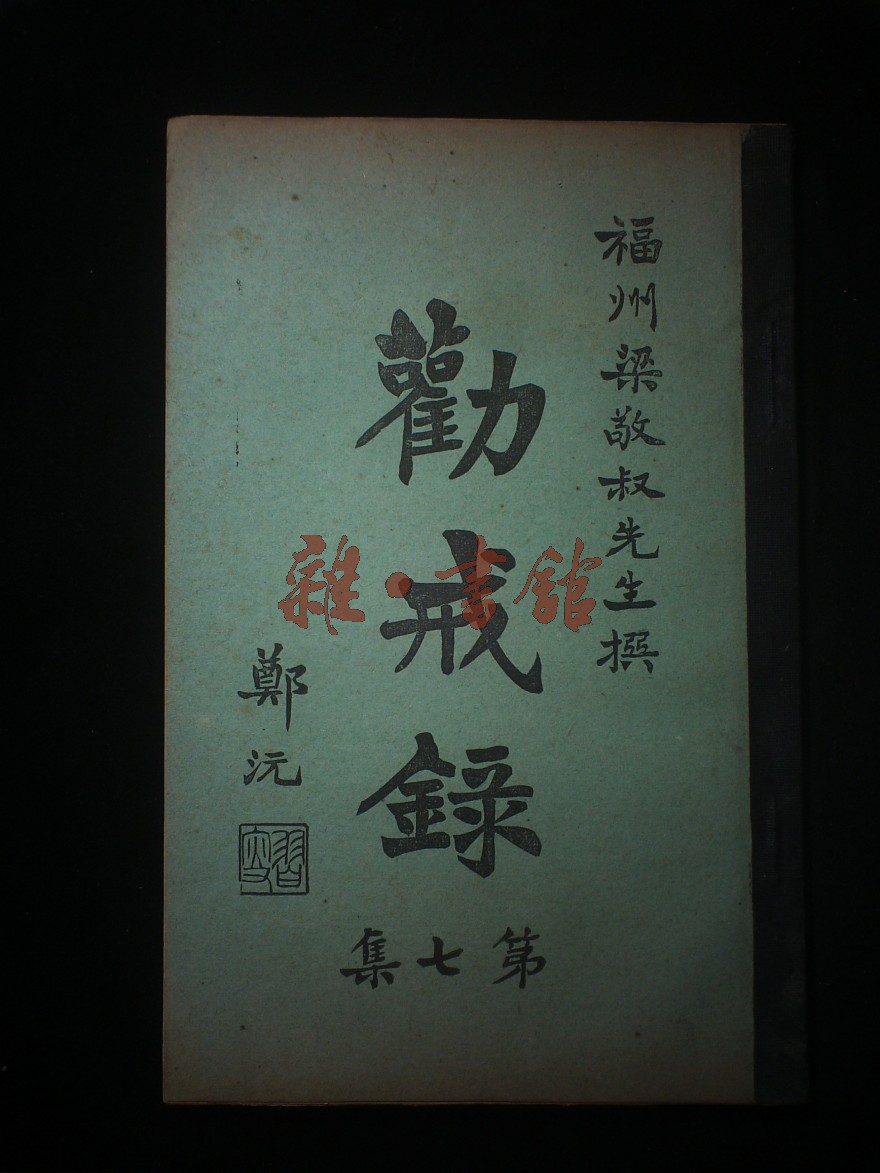 福州梁敬叔先生撰
勸戒錄
第七集
鄭沅
雜·書館